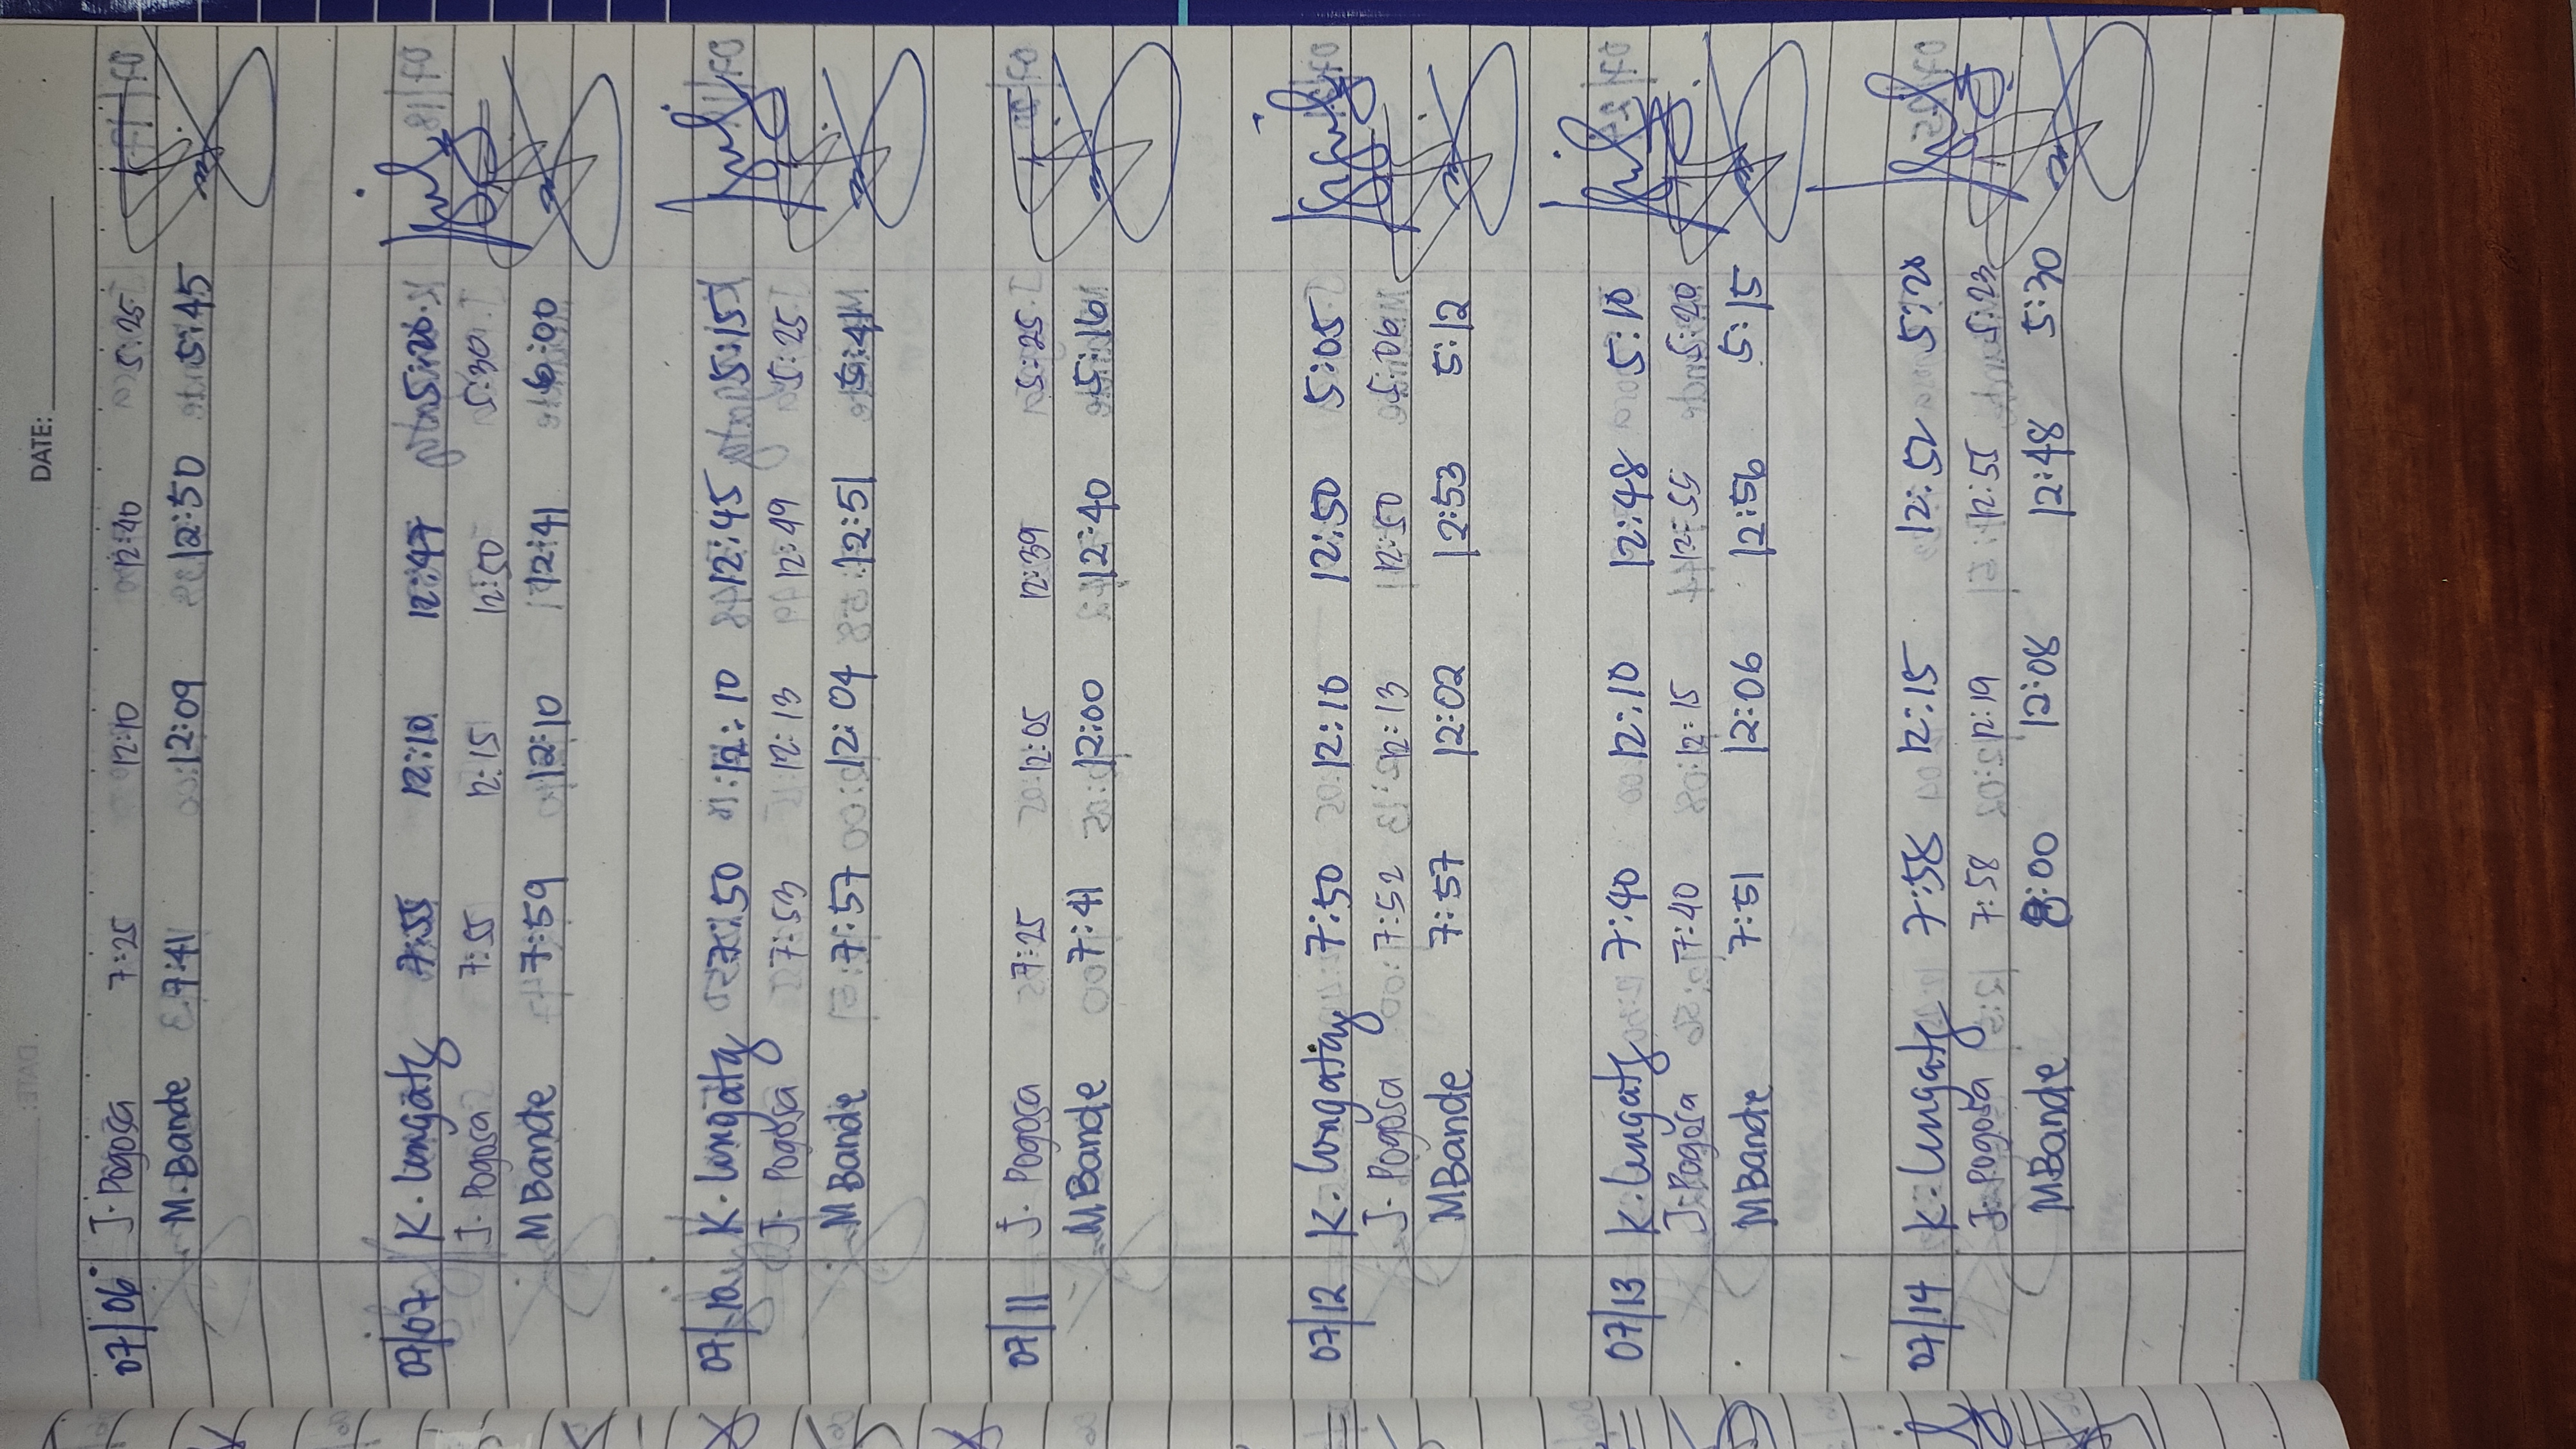 DATE:
07/06 J. Pogosa 7:25 12:10 12:40 5:25
M. Bande 7:41 12:09 12:50 5:45
07/07 K. Lungaty 7:55 12:10 12:47 5:20
J. Pogosa 7:55 12:15 12:50 5:30
M Bande 7:59 12:10 12:41 6:00
07/10 K. Lungaty 7:50 12:10 12:45 5:15
J. Pogosa 7:53 12:13 12:49 5:25
M Bande 7:57 12:04 12:51 5:41
07/11 J. Pogosa 7:25 12:05 12:39 5:25
M Bande 7:41 12:00 12:40 5:16
07/12 K. Lungatay 7:50 12:10 12:50 5:05
J. Pogosa 7:52 12:13 12:50 5:06
MBande 7:57 12:02 12:53 5:12
07/13 K. Lungaty 7:40 12:10 12:48 5:10
J. Pogosa 7:40 12:15 12:55 5:20
MBande 7:51 12:06 12:56 5:15
07/14 K. Lungaty 7:58 12:15 12:51
J. Pogosa 7:58 12:19 12:55 5:25
MBande 8:00 12:08 12:48 5:30